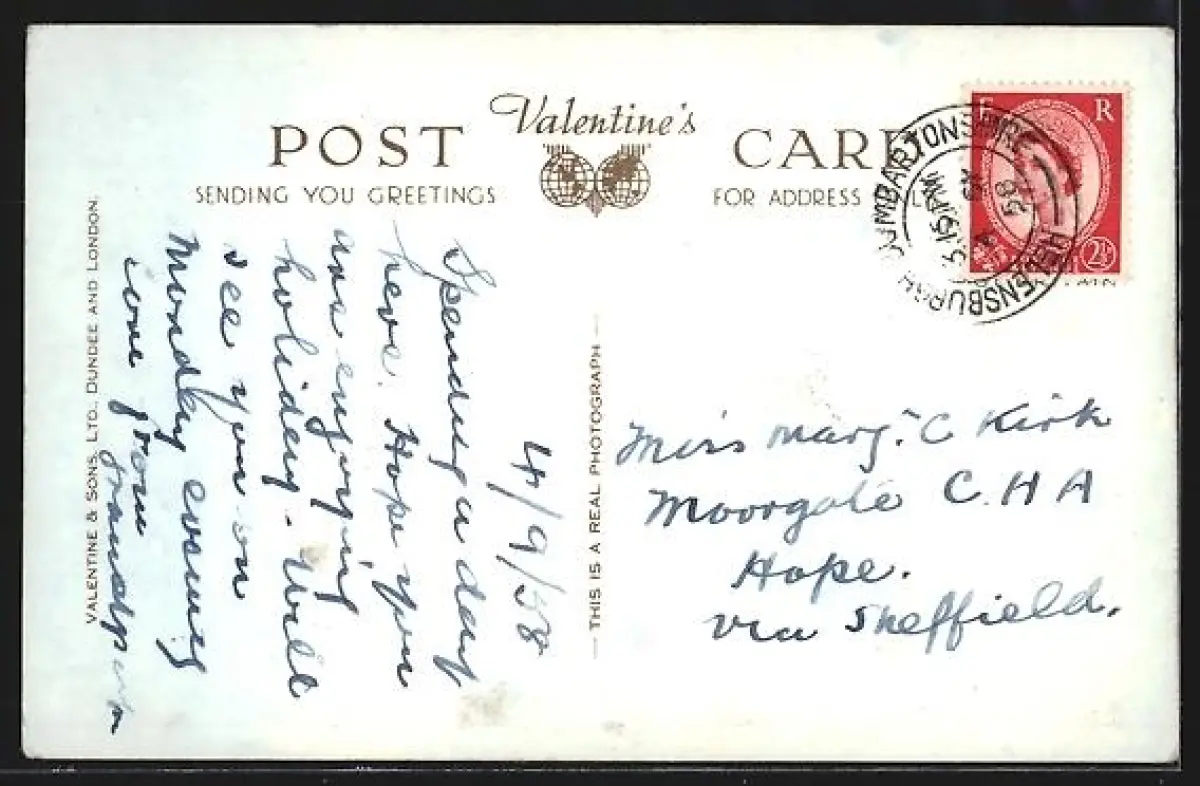 Valentine's
POST CARD
SENDING YOU GREETINGS
FOR ADDRESS
HELENSBURGH DUMBARTONSHIRE
5.15PM
58
E R
2½
4/9/58
Spending a day
here. Hope you
are enjoying
holiday. Will
see you on
Monday evening
love from
grandpa
THIS IS A REAL PHOTOGRAPH
VALENTINE & SONS, LTD., DUNDEE AND LONDON.
Miss Marg. C Kirk
Moorgate C.H A
Hope.
via Sheffield.